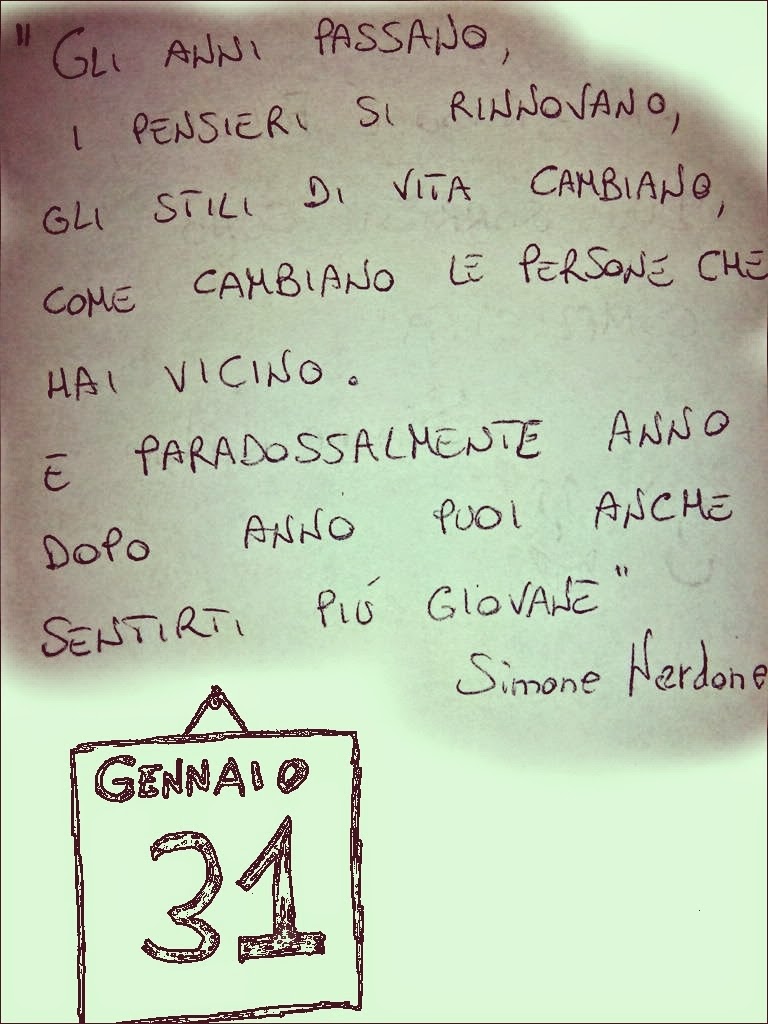 "GLI ANNI PASSANO,
I PENSIERI SI RINNOVANO,
GLI STILI DI VITA CAMBIANO,
COME CAMBIANO LE PERSONE CHE
HAI VICINO.
E PARADOSSALMENTE ANNO
DOPO ANNO PUOI ANCHE
SENTIRTI PIÚ GIOVANE"
Simone Nardone
GENNAIO
31